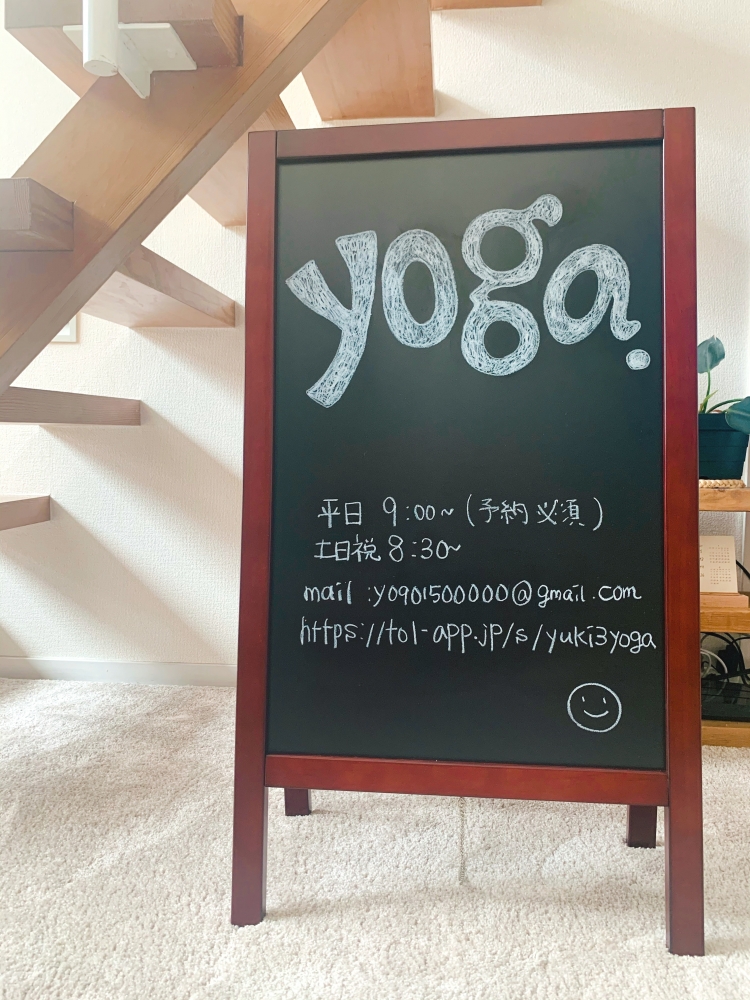 yoga.
平日 9:00~ (予約必須)
土日祝 8:30~
mail :y0901500000@gmail.com
https://tol-app.jp/s/yuki3yoga